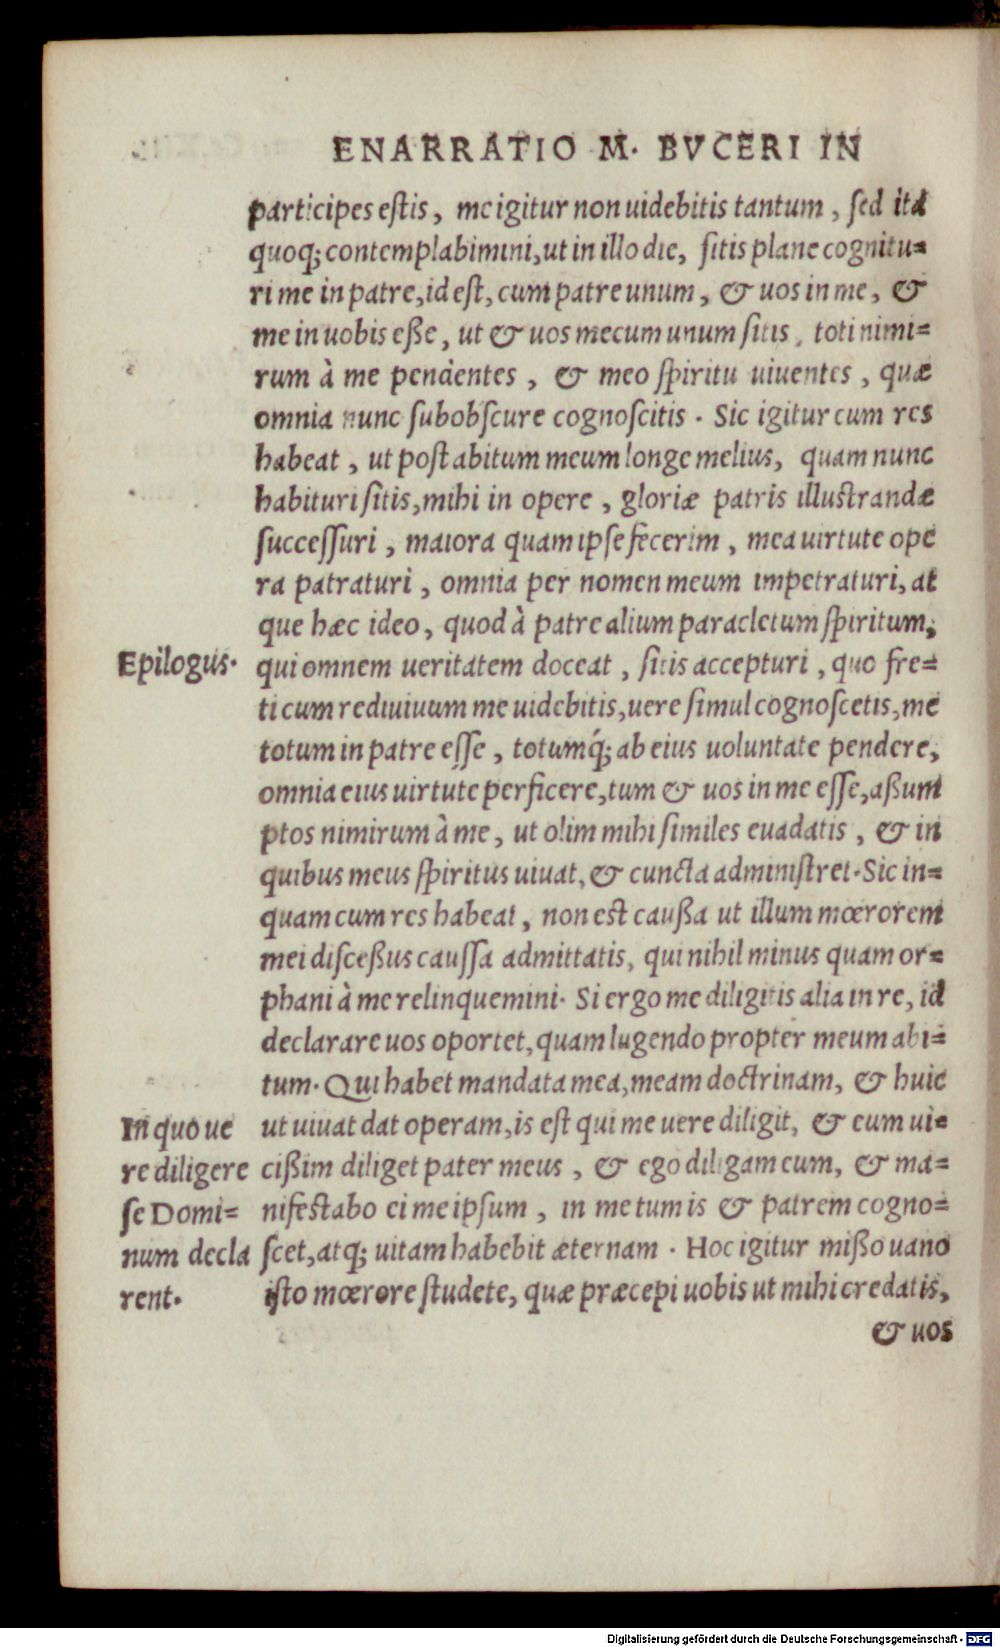 ENARRATIO M. BVCERI IN
participes eſtis, me igitur non uidebitis tantum, ſed ita
quoq; contemplabimini, ut in illo die, ſitis plane cognitu=
ri me in patre, id eſt, cum patre unum, & uos in me, &
me in uobis eße, ut & uos mecum unum ſitis, toti nimi=
rum à me pendentes, & meo ſpiritu uiuentes, quæ
omnia nunc ſubobſcure cognoſcitis. Sic igitur cum res
habeat, ut poſt abitum meum longe melius, quam nunc
habituri ſitis, mihi in opere, gloriæ patris illuſtrandæ
ſucceſſuri, maiora quam ipſe fecerim, mea uirtute ope
ra patraturi, omnia per nomen meum impetraturi, at
que hæc ideo, quod à patre alium paracletum ſpiritum,
Epilogus.
qui omnem ueritatem doceat, ſitis accepturi, quo fre=
ti cum rediuiuum me uidebitis, uere ſimul cognoſcetis, me
totum in patre eſſe, totumq́; ab eius uoluntate pendere,
omnia eius uirtute perficere, tum & uos in me eſſe, aßum
ptos nimirum à me, ut olim mihi ſimiles euadatis, & in
quibus meus ſpiritus uiuat, & cuncta adminiſtret. Sic in=
quam cum res habeat, non eſt caußa ut illum mœrorem
mei diſceßus cauſſa admittatis, qui nihil minus quam or=
phani à me relinquemini. Si ergo me diligitis alia in re, id
declarare uos oportet, quam lugendo propter meum abi=
tum. Qui habet mandata mea, meam doctrinam, & huic
In quo ue
re diligere
ſe Domi=
num decla
rent.
ut uiuat dat operam, is eſt qui me uere diligit, & eum ui=
cißim diliget pater meus, & ego diligam eum, & ma=
nifeſtabo ei meipſum, in me tum is & patrem cogno=
ſcet, atq; uitam habebit æternam. Hoc igitur mißo uano
iſto mœrore ſtudete, quæ præcepi uobis ut mihi credatis,
& uos
Digitalisierung gefördert durch die Deutsche Forschungsgemeinschaft - DFG